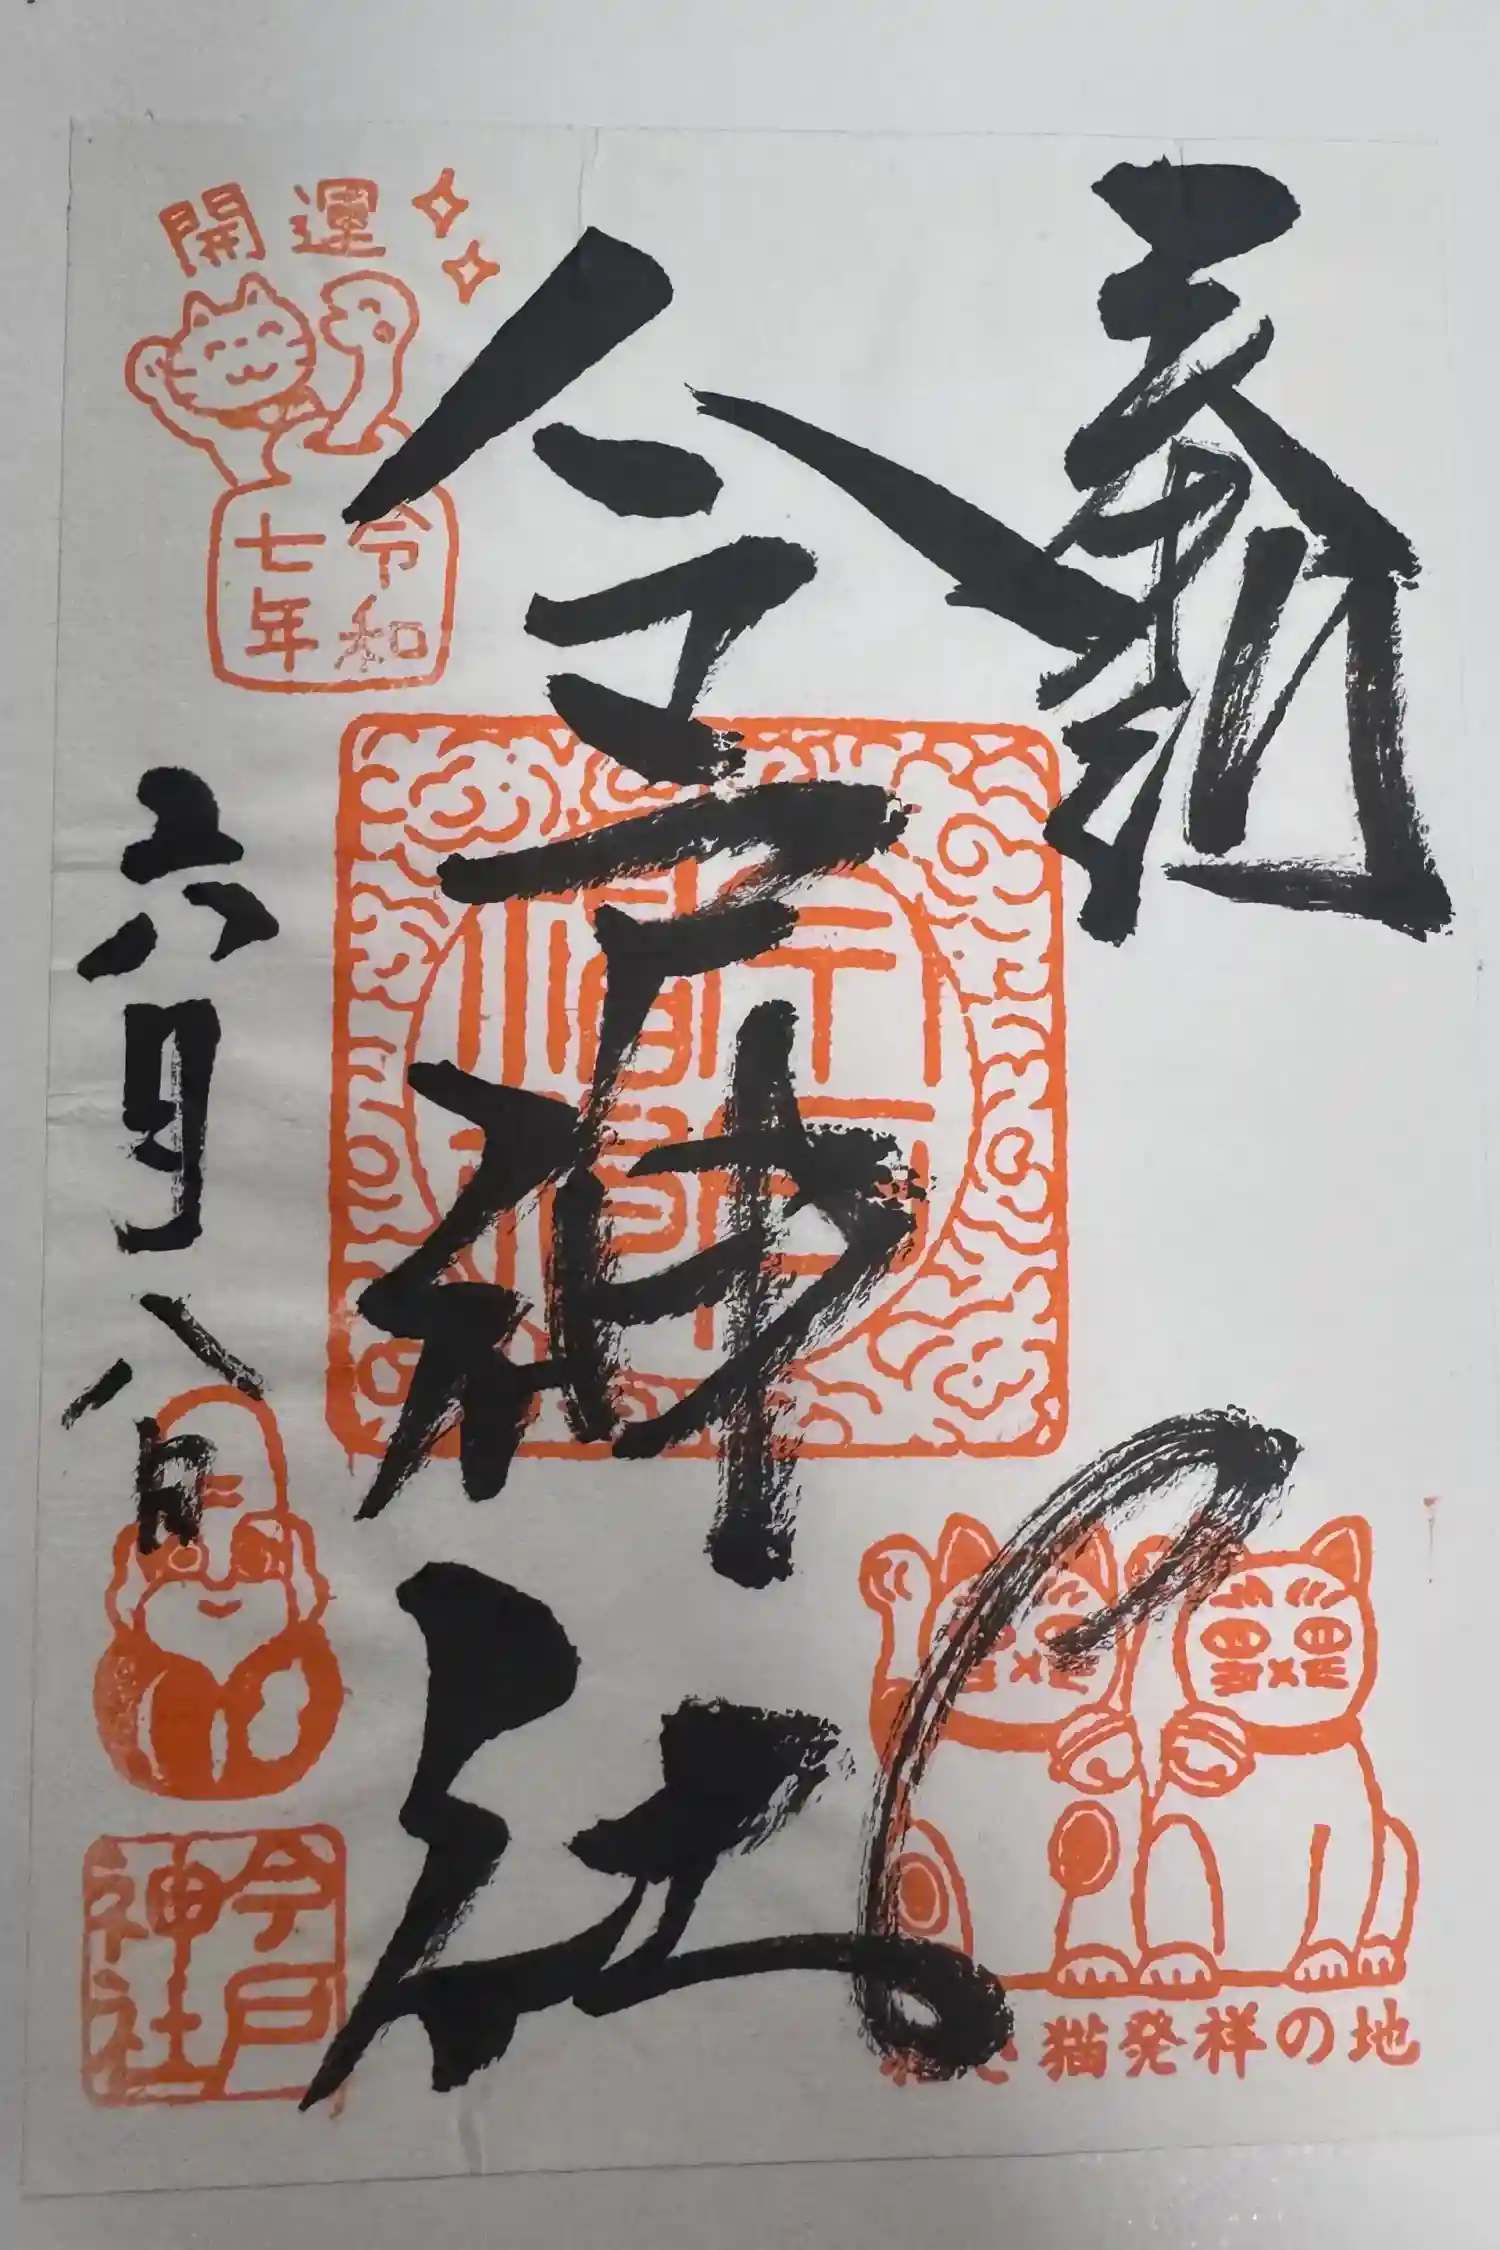 奉拝
今戸神社
開運
令和
七年
六月八日
今戸
神社
招き猫発祥の地